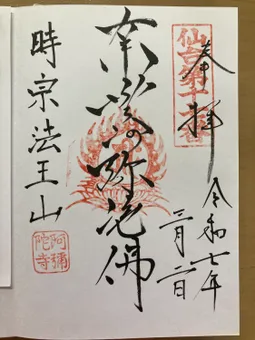 奉拝
令和七年
二月二日
仙台第十一番
南無阿弥陀佛
時宗法王山
阿彌陀寺